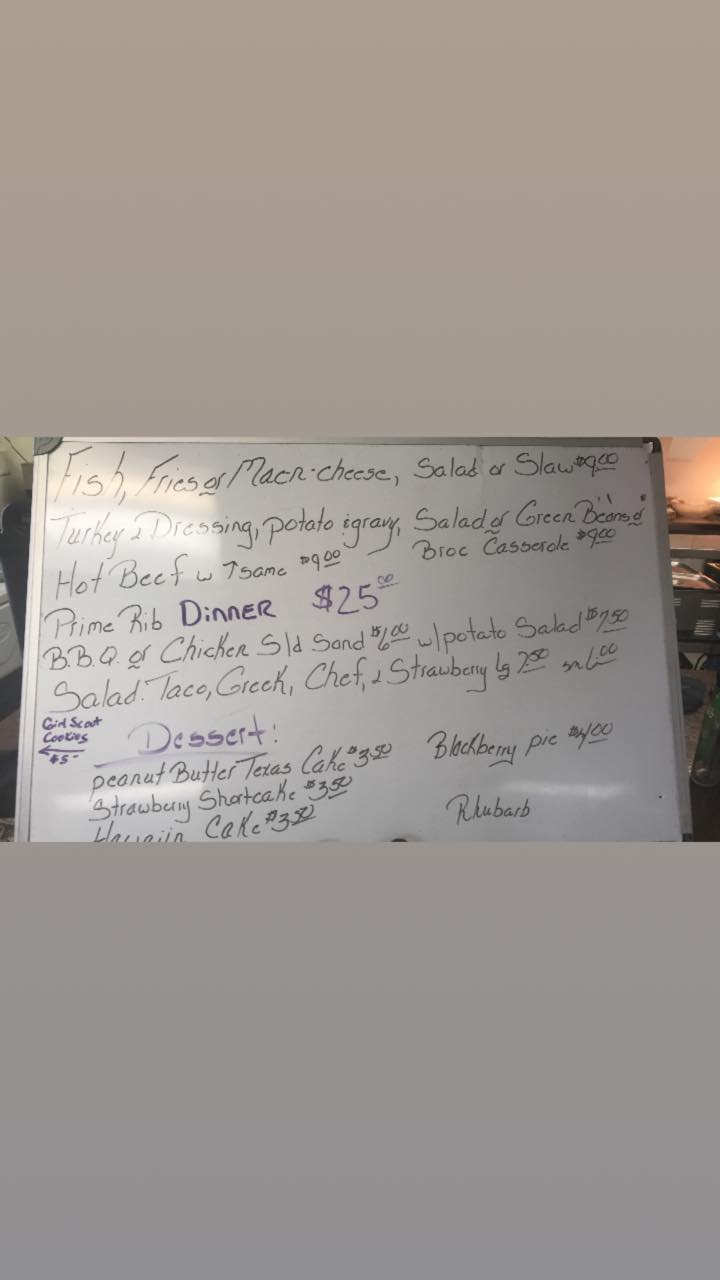 Fish, Fries or Mac n-cheese, Salad or Slaw $9.00
Turkey & Dressing, potato & gravy, Salad or Green Beans or
Broc Casserole $9.00
Hot Beef w ↑ same $9.00
Prime Rib DINNER $25.00
B.B.Q. or Chicken Sld Sand $6.00 w/potato Salad $7.50
Salad: Taco, Greek, Chef, & Strawberry lg 7.50 sm 6.00
Girl Scout
Cookies
← $5-
Dessert:
peanut Butter Texas Cake $3.50
Blackberry pie $4.00
Strawberry Shortcake $3.50
Rhubarb
Cake $3.50